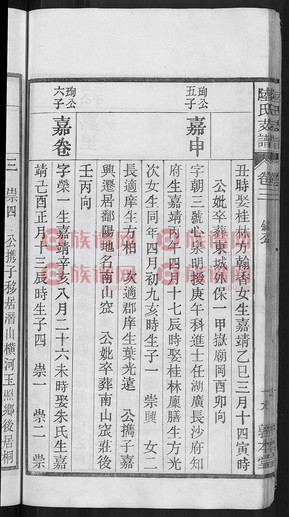 陸氏支譜
卷二
丑時娶桂林方翰香女生嘉靖乙巳三月十四寅時
公妣卒葬東城外保一甲獄廟岡酉卯向
珣公五子
嘉申
字朝三號心泉明授庚午科進士任湖廣長沙府知
府生嘉靖丙午四月十七辰時娶桂林廩膳生方光
次女生同年四月初九亥時生子一 崇興 女二
長適庠生方相 次適郡庠生葉光遠 公攜子嘉
興遷居鄱陽地名南山窊 公妣卒葬南山窊莊後
壬丙向
珣公六子
嘉卷
字榮一生嘉靖辛亥八月二十六未時娶朱氏生嘉
靖己酉正月十三辰時生子四 崇一 崇二 崇
三 崇四 公攜子移居潛山橫河玉照鄉後居桐
敦本堂
族譜網